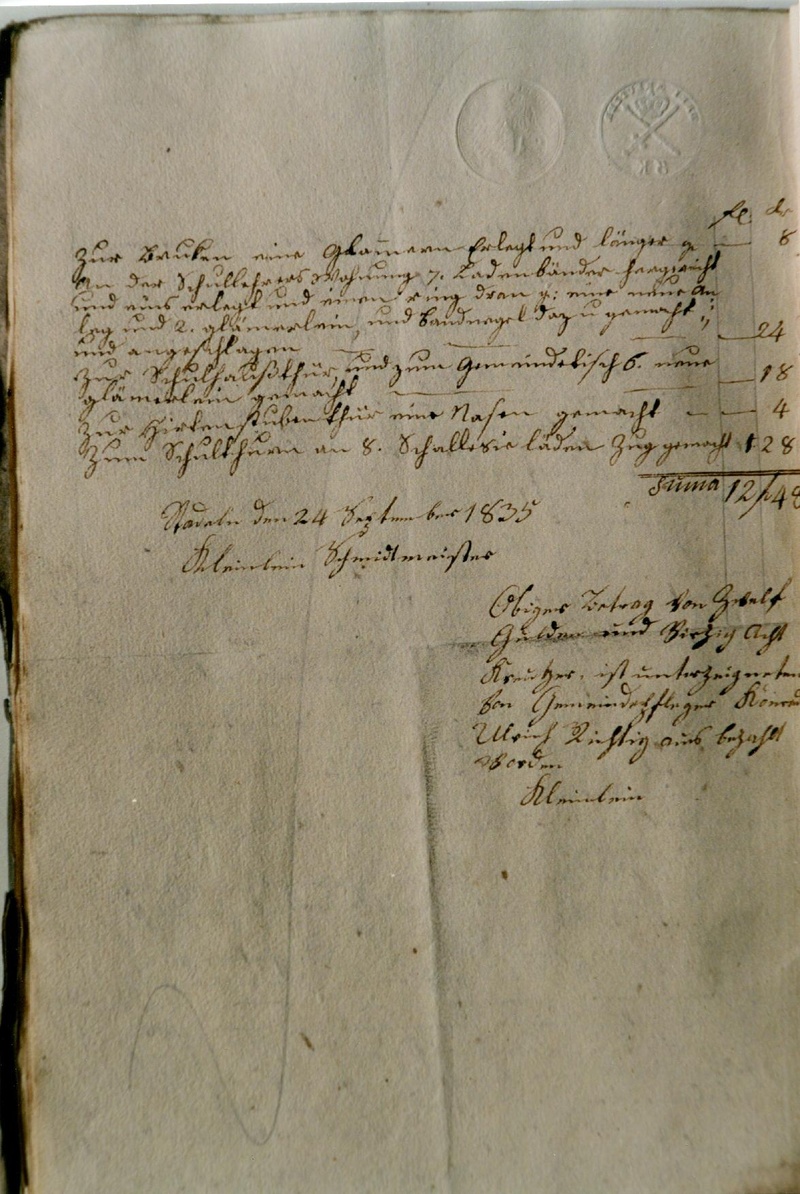 fl. kr
Zur Bruken eine Glamern Erlegt und länger g. — 8
An der Schullehrers Wohnung 7. Ladenbänder hergericht
und eins erlegt und einen ring dran g: eine neue An
leg und 2. glämerlein, und Bandnegel dazu gemacht,
und angeschlagen — 24
Zur Schulhaußthür, und zum Gemeindetisch 6. neue
glämerlein gemacht — 18
Zur Hirtenstubenthür eine Nasen gemacht — 4
Zum Schulthurn an 8. Schallesie läden Zug gemacht 1 28
Suma 12/48
Stadeln den 24 September 1835
Kleinlein Schmidtmeister
Obiger Betrag von Zwelf
Gulden und Virzig Acht
Kreutzer, ist unterzeigneten
von Gemeindepfleger
Ulrich Richtig aus bezahlt
Worden
Kleinlein